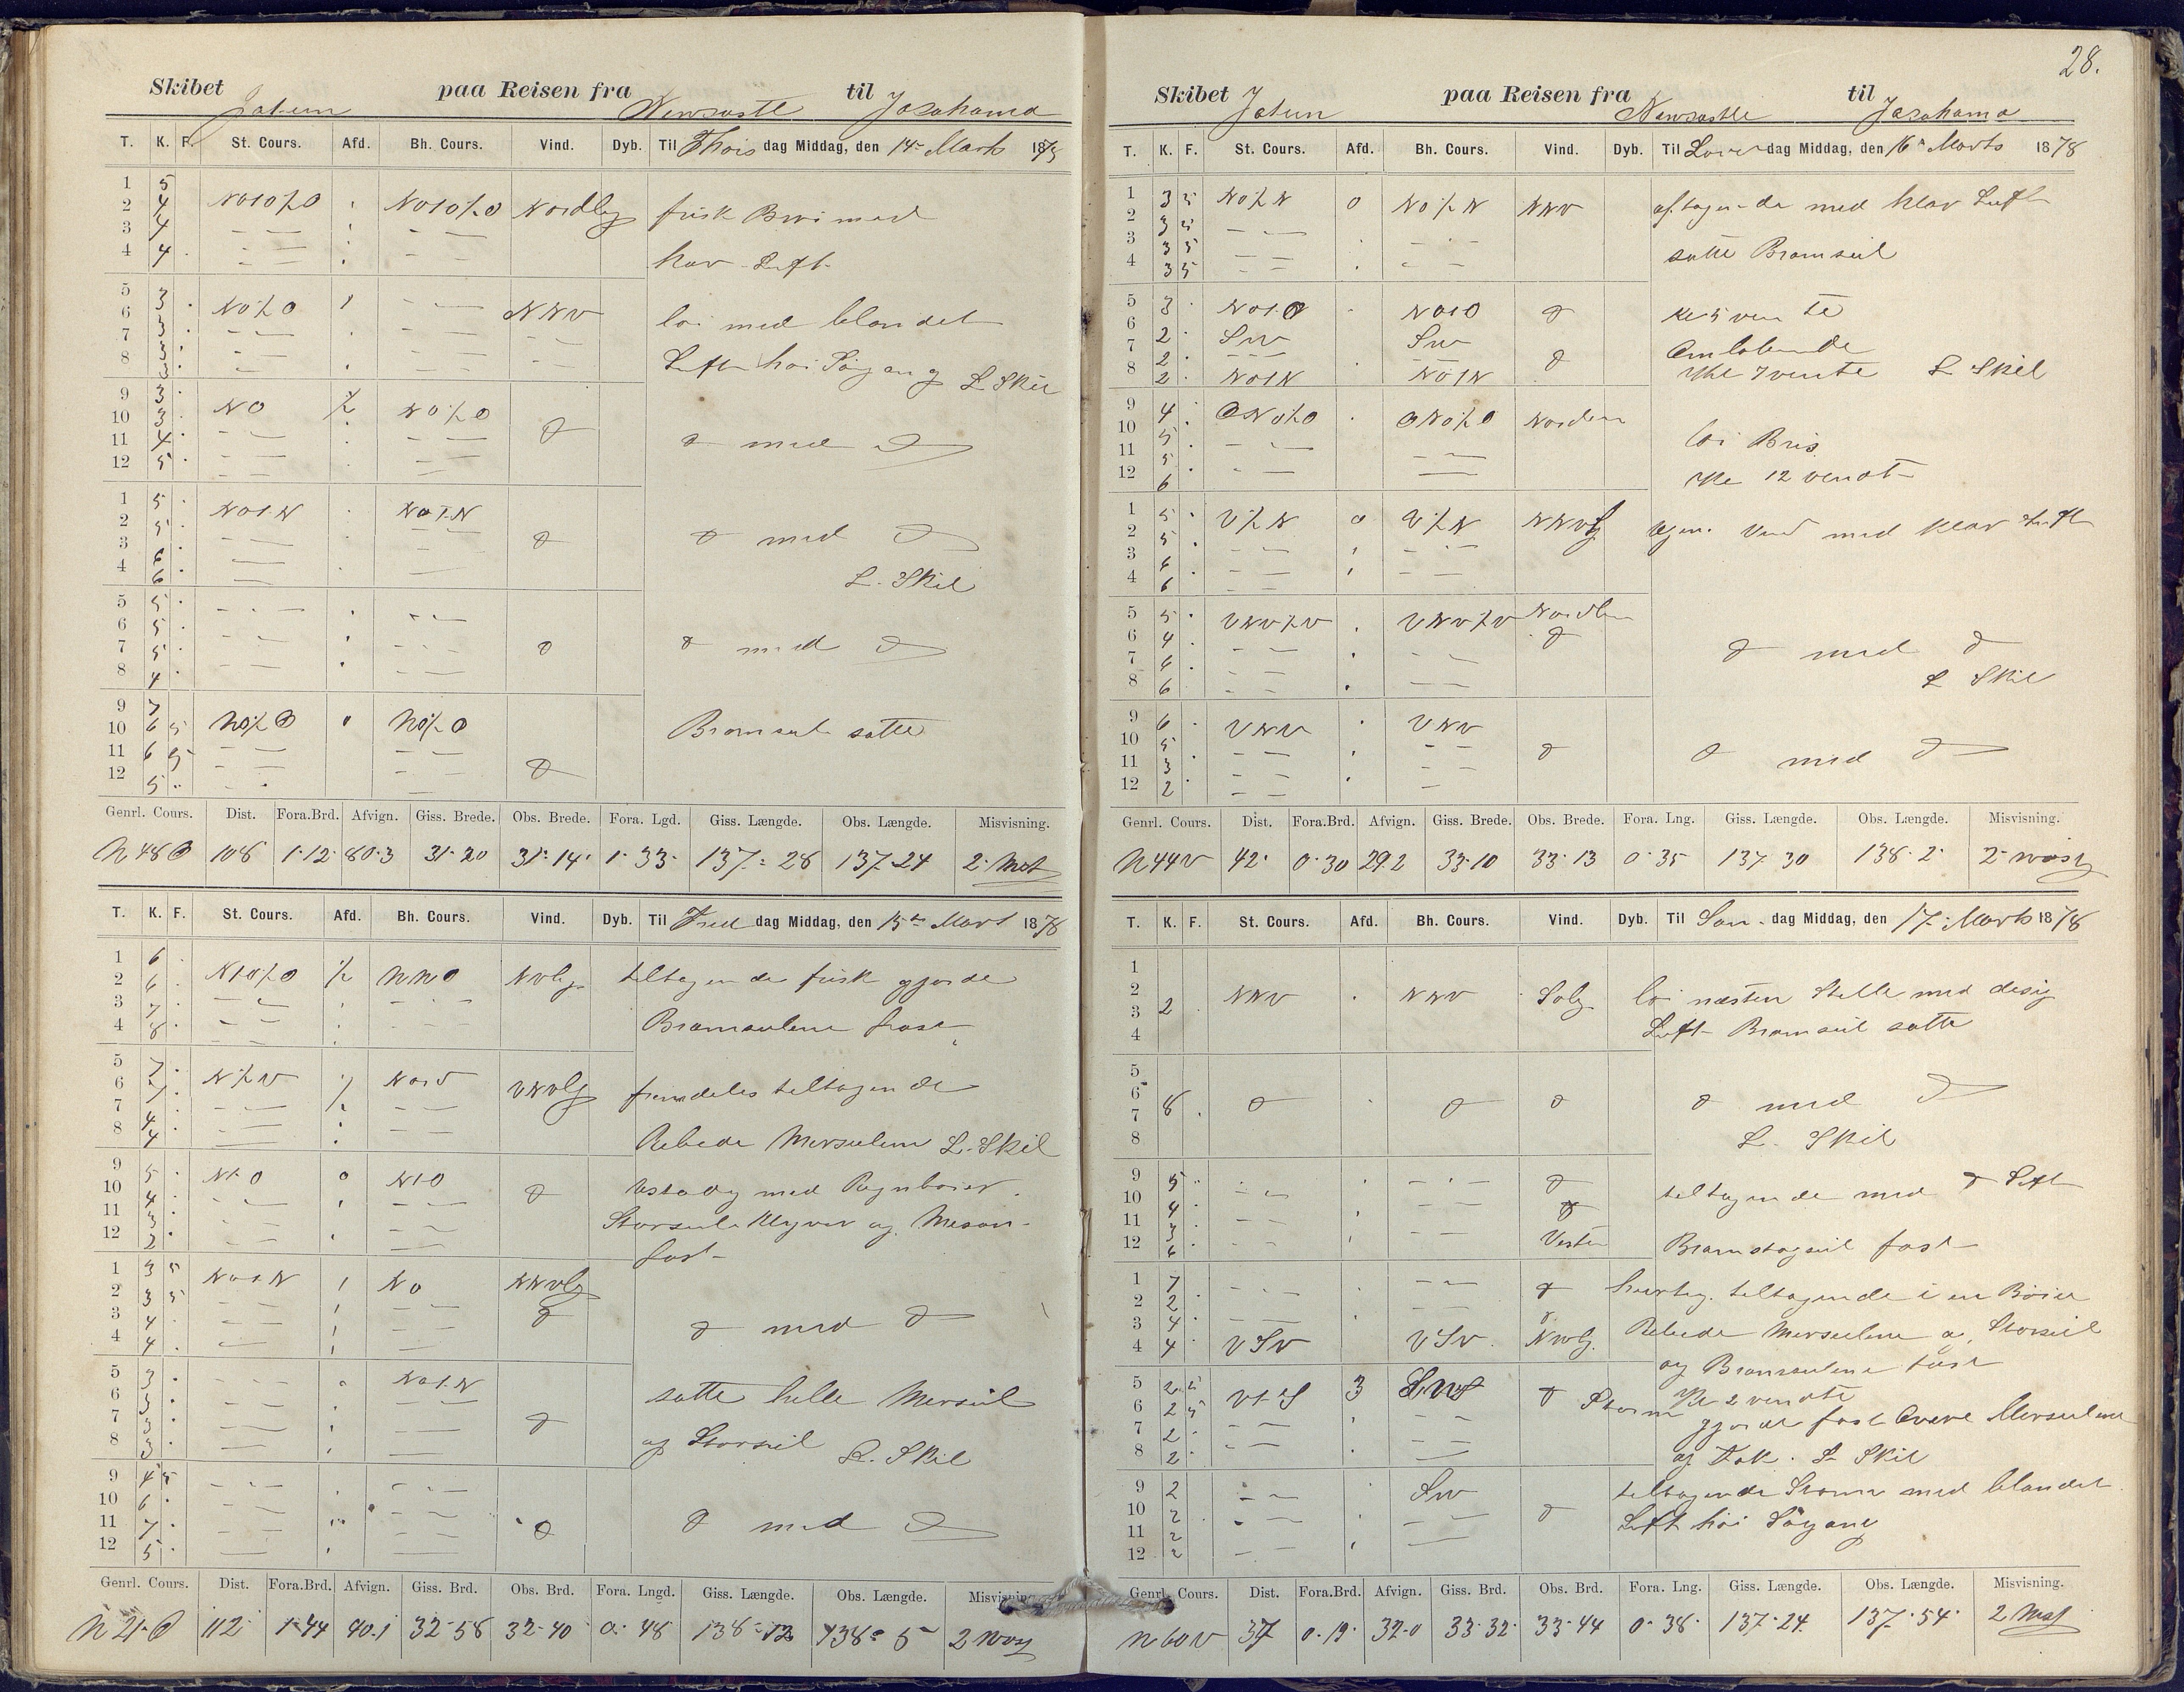 28.
Skibet Jatun paa Reisen fra Newcastle til Jocohama
T. K. F. St. Cours. Afd. Bh. Cours. Vind. Dyb. Til Thors dag Middag, den 14de Marts 1878
1 5
2 4 NO10½O NO10½O Nordlig frisk Bris med
3 4
4 4 klar Luft
5 3
6 3 NO½O NNV löi med blandet
7 3
8 3 Luft höi Söygang L. Skil
9 3
10 3 NO ½ NO½O
11 4 med
12 5
1 5 NO1N NO1N
2 5
3 6 med
4 6 L. Skil
5 5
6 5
7 5 med
8 4
9 7
10 6 5 NO½O NO½O Bramseil satte
11 6 5
12 5
Genrl. Cours. Dist. Fora.Brd. Afvign. Giss. Brede. Obs. Brede. Fora. Lgd. Giss. Længde. Obs. Længde. Misvisning.
N48O 108 1-12 80.3 31-20 31-14 1-33 137-28 137-24 2
T. K. F. St. Cours. Afd. Bh. Cours. Vind. Dyb. Til Fre dag Middag, den 15de Mart 1878
1 6
2 6 N10½O ½ NNO NVlig tiltagende frisk gjorde
3 7
4 8 Bramseilene fast
5 7
6 7 N½V ½ Nord VNVlig fremdeles tiltagende
7 4
8 4 Rebede Merseilene L. Skil
9 5 N1O N1O
10 4 Ustadig med Regnboier
11 3 Storseil Klyver og Mesan
12 2 fast
1 3 5 NO1N NO NNVlig
2 3 5
3 4 med
4 4
5 3 NO1N
6 3 satte hele Merseil
7 3
8 3 og Storseil L. Skil
9 4 5
10 6
11 7 med
12 5
Genrl. Cours. Dist. Fora.Brd. Afvign. Giss. Brd. Obs. Brd. Fora. Lngd. Giss. Længde. Obs. Længde. Misvisning
N21O 112 1-44 40.1 32-58 32-40 0-48 138-12 138-5 2
Skibet Jatun paa Reisen fra Newcastle til Jocohama
T. K. F. St. Cours. Afd. Bh. Cours. Vind. Dyb. Til Löver dag Middag, den 16de Marts 1878
1 3 5 NO½N 0 NO½N NNV aftagende med klar Luft
2 3 5
3 3 5 satte Bramseil
4 3 5
5 3 NO1O NO1O Kl 5 vendte
6 2 SW SW Omlöbende
7 2
8 2 NO1N NO1N Kl 7 vendte L Skil
9 4 ONO½O ONO½O Norden
10 5 löi Bris
11 5
12 6 Kl 12 vendt
1 5 V½N 0 V½N NNVlig Vind med klar Luft
2 5
3 6
4 6
5 5 VNV½V VNV½V Nordlig
6 4
7 6 med
8 6 L Skil
9 6 VNV VNV
10 5
11 3 med
12 2
Genrl. Cours. Dist. Fora.Brd. Afvign. Giss. Brede. Obs. Brede. Fora. Lng. Giss. Længde. Obs. Længde. Misvisning.
N44V 42 0-30 29.2 33-10 33-13 0-35 137-30 138-2 2
T. K. F. St. Cours. Afd. Bh. Cours. Vind. Dyb. Til Søn dag Middag, den 17de Marts 1878
1
2 NNV NNV Solig löi næsten Stille med disig
3 2
4 Luft Bramseil satte
5
6
7 8 med
8 L. Skil
9 5
10 4 tiltagende med Luft
11 3
12 6 Vesten Bramstagseil fast
1 7 hurtig tiltagende i en Böie
2 2
3 4 Rebede Merseilene og Storseil
4 4 VSV VSV NVlig
og Bramseilene fast
5 2 5 V1S 3 SW Storm Kl 2 vendte
6 2 5 gjorde fast Övre Merseilene
7 2
8 2 og Fok. L Skil
9 2 SW tiltagende Storm med blandet
10 2 Luft höi Söygang
11 2
12 2
Genrl. Cours. Dist. Fora.Brd. Afvign. Giss. Brd. Obs. Brd. Fora. Lng. Giss. Længde. Obs. Længde. Misvisning.
N60V 37 0-19 32-0 33-32 33-44 0-38 137-24 137-54 2